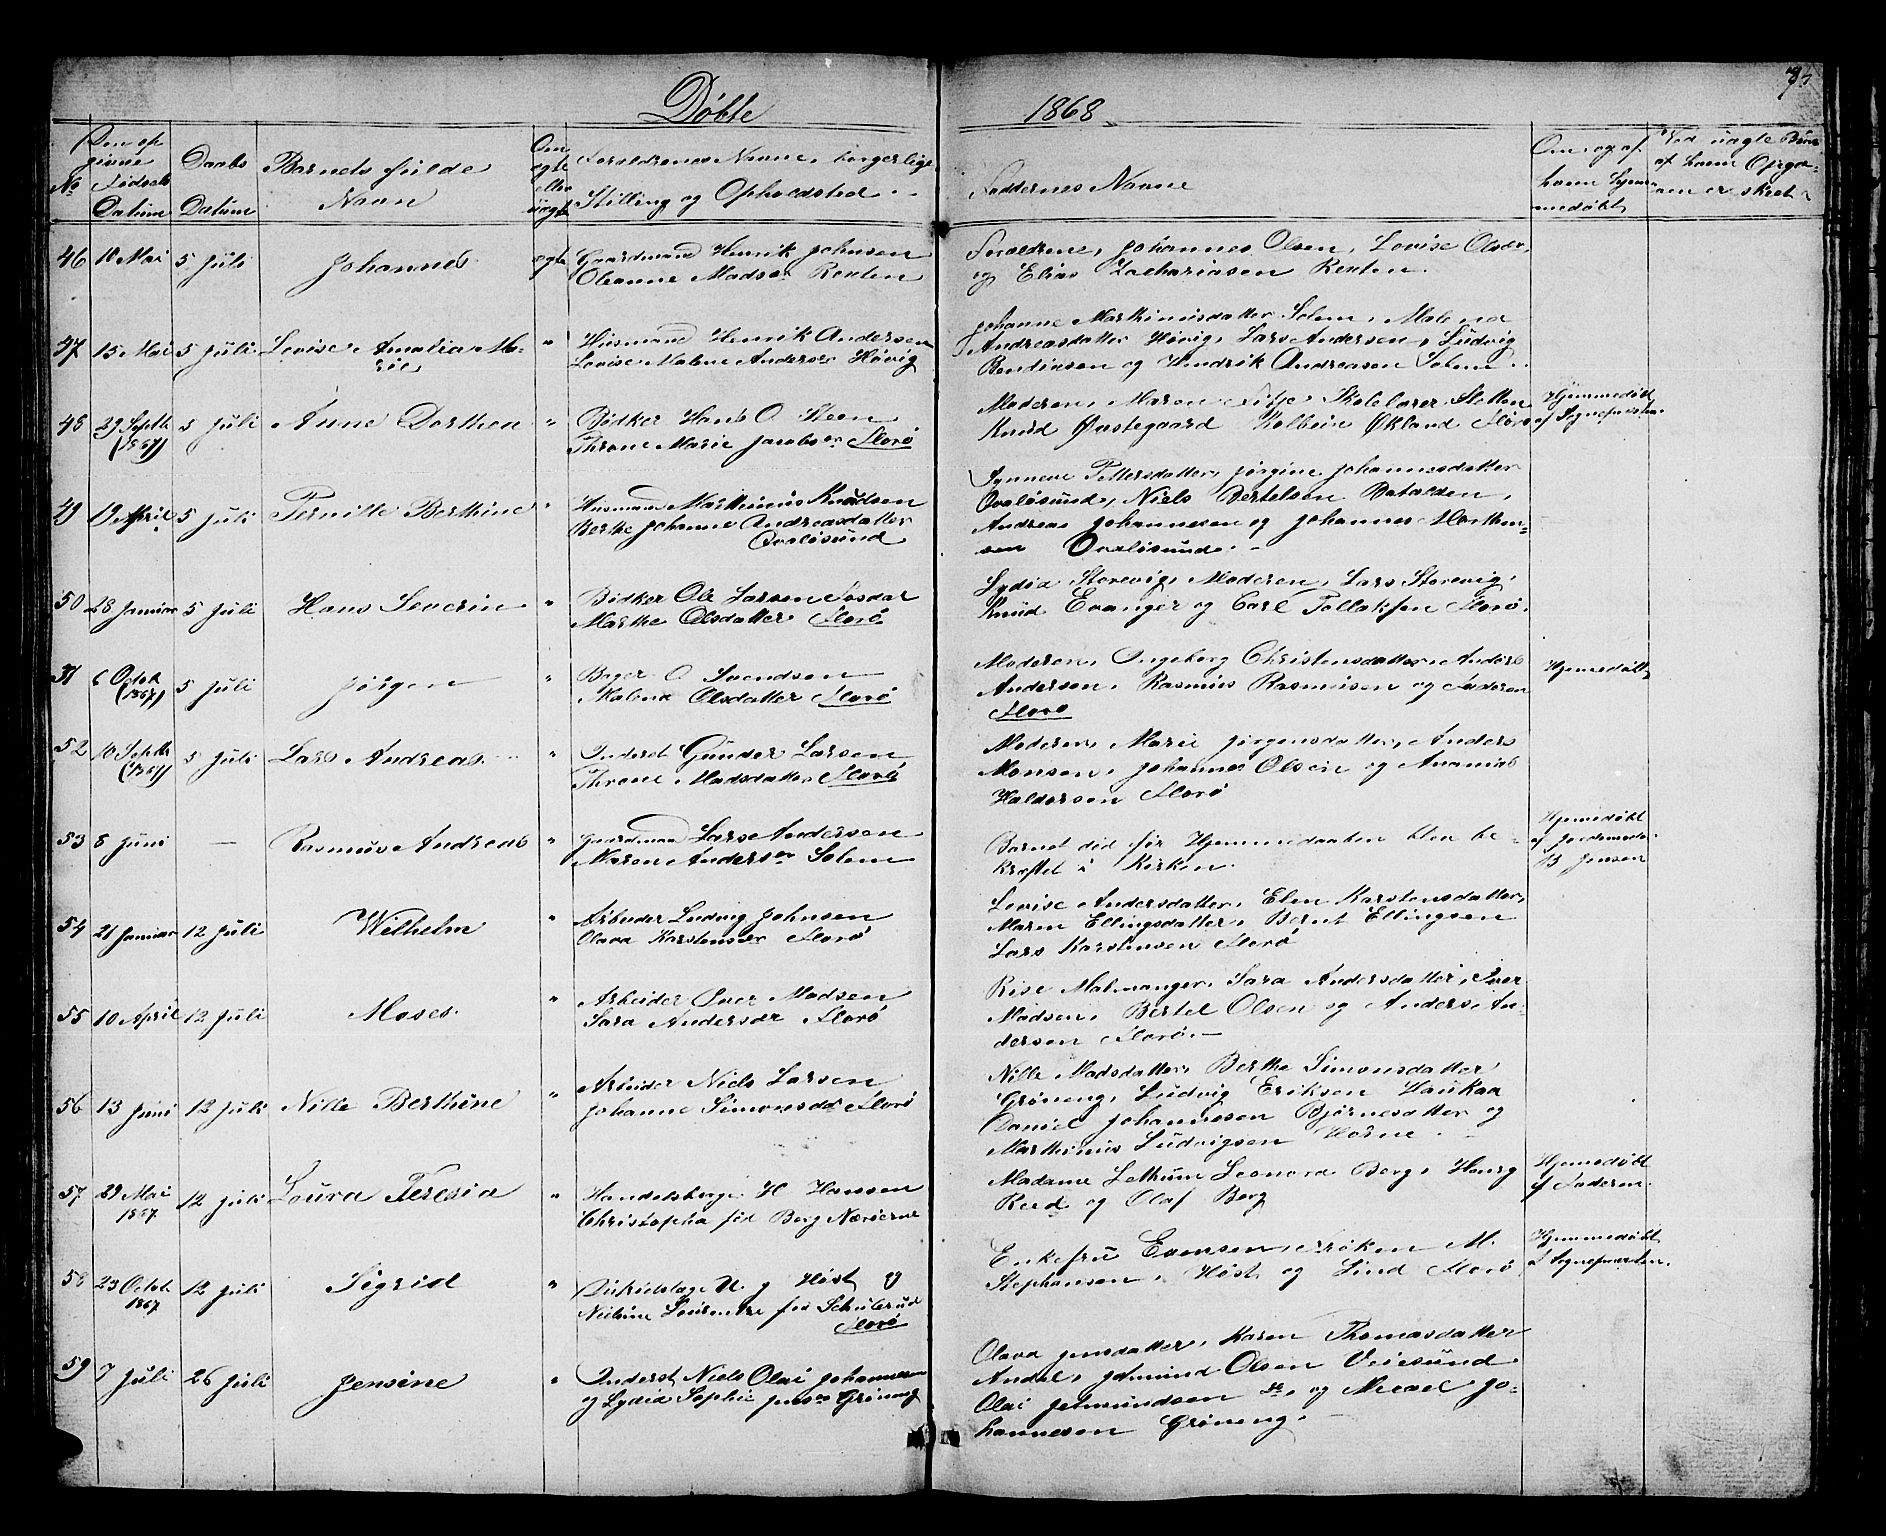 Døbte
1868
No
Den op
givne
Fødsels
Datum
Daabs
Datum
Barnets fulde
Navn
Om
ægte
eller
uægte
Forældrenes Navne, borgerlige
Stilling og Opholdsted
Faddernes Navne
Om og af
hvem hjem-
medøbt
Ved uægte Børn
af hvem Opga-
ven er skeet
46 10 Mai 5 Juli Johannes ægte Gaardmand Henrik Johnsen
Oleanne Mads Renten
Forældrene, Johannes Olsen, Lovise Olsdr,
og Elias Zachariasen Renten.
47 15 Mai 5 Juli Lovise Amalia Ma-
rie
" Husmand Henrik Andersen
Lovise Malene Andersdr Høvig
Johanne Markhinusdatter Solem, Malena
Andreasdatter Høvig, Lars Andersen, Ludvig
Bendixsen og Hendrik Andreasen Solem.
48 29 Septb
(1867) 5 Juli Anne Dorthea " Bødker Hans O Steen
Throne Marie Jacobsdr Florø
Moderen, Maren Skolelærer Sletten
Knud Østegaard Kolbein Økland Florø
Hjemmedøbt
af Sognepresten
49 19 April 5 Juli Pernille Berthine " Husmand Marthinius Knudsen
Berthe Johanne Andreasdatter
Ovaløsund
Synneve Pettersdatter, Jørgine Johannesdatter
Ovaløsund, Niels Bertelsen Batalden,
Andreas Johannesen og Johannes Marthin-
sen Ovaløsund.
50 28 Januar 5 Juli Hans Severin " Bødker Ole Larsen
Marthe Olsdatter Florø
Lydia Storevig, Moderen, Lars Storevig,
Knud Evanger og Carl Tollaksen Florø.
51 6 Octob
(1867) 5 Juli Jørgen " Bager O Svendsen
Malena Olsdatter Florø
Moderen, Ingeborg Christensdatter, Andors
Andersen, Rasmus Rasmusen og Faderen
Florø
Hjemmedøbt
52 10 Septbr
(1867) 5 Juli Lars Andreas " Inderst Gunder Larsen
Throne Madsdatter Florø
Moderen, Marie Jørgensdatter, Anders
Monsen, Johannes Olsen og Ananias
Haldorsen Florø
53 8 Juni — Rasmus Andreas " Gaardmand Lars Andersen
Maren Andersdr Solem
Barnet død før Hjemmedaaben blev be-
kræftet i Kirken.
Hjemmedøbt
af Jordemoder
B Jensen
54 21 Januar 12 Juli Wilhelm " Arbeider Ludvig Johnsen
Olava Karstensdr Florø
Lovise Andersdatter, Elen Karstensdatter,
Maren Ellingsdatter, Bernt Ellingsen
Lars Karstensen Florø
55 10 April 12 Juli Moses " Arbeider Iver Madsen
Sara Andersdr Florø
Rise Malmanger, Sara Andersdatter, Iver
Madsen, Bertel Olsen og Anders An-
dersen Florø.
56 13 Juni 12 Juli Nille Berthine " Arbeider Niels Larsen
Johanne Simonsdr Florø
Nille Madsdatter, Berthe Simonsdatter
Grøneng, Ludvig Eriksen Haukaa
Daniel Johannesen Bjørnesætter og
Marthinus Ludvigsen Horne.
57 29 Mai
1867 12 Juli Loura Teresia " Handelsborger H Hanssen
Christopha fød Borg Nærøerne
Madame Lethum Leonora Borg, Henrg
Reed og Olaf Borg
Hjemmedøbt
af Faderen.
58 23 Octob
1867 12 Juli Sigrid " Distriktslæge N. J Høst og
Nielsine Laurentze fød Schulerud
Florø
Enkefru Evensen, Frøken M.
Stephansen, Høst og Lind Florø
Hjemmedøbt
af Sognepresten.
59 7 Juli 26 Juli Jensine " Inderst Niels Olai Johannesen
og Lydia Sophie Jensdr Grøneng
Olava Jensdatter, Karen Thomasdatter
Andal, Jetmund Olsen Veiesund
Olai Jetmundsen do, og Mecael Jo-
hannesen Grøneng.